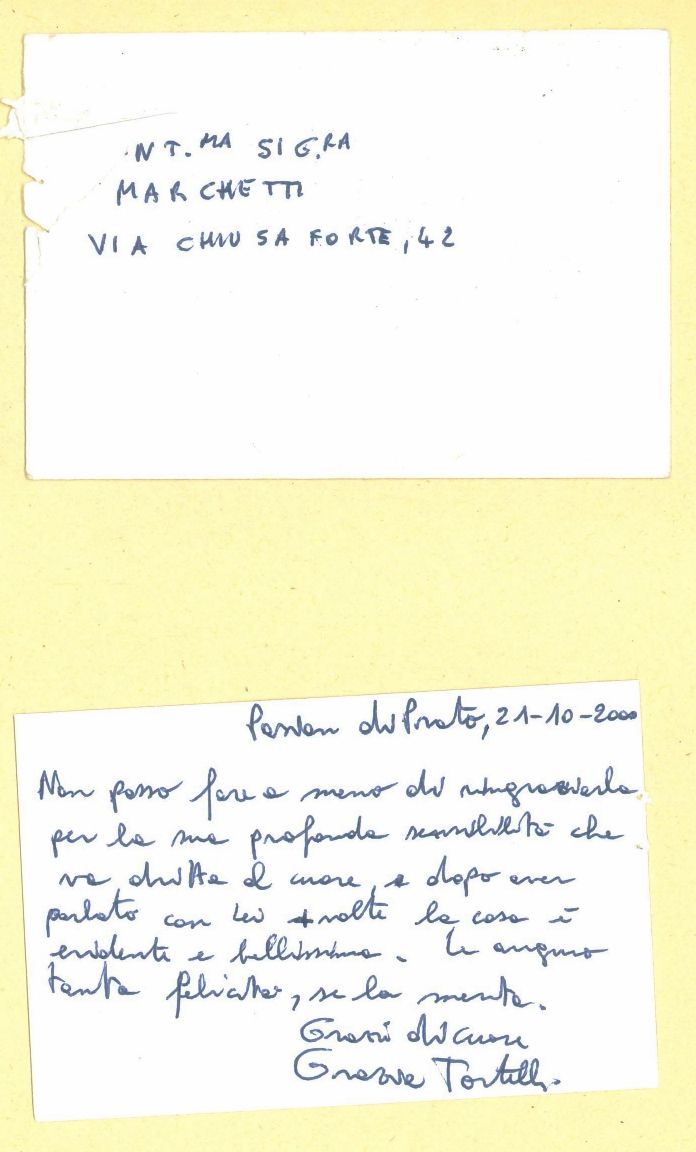 NT.MA SIG.RA
MARCHETTI
VIA CHIUSAFORTE, 42
Pasian di Prato, 21-10-2000
Non posso fare a meno di ringraziarla
per la sua profonda sensibilità che
va dritta al cuore, e dopo aver
parlato con Lei + volte la cosa è
evidente e bellissima. Le auguro
tanta felicità, se la merita.
Grazie di cuore
Grazia